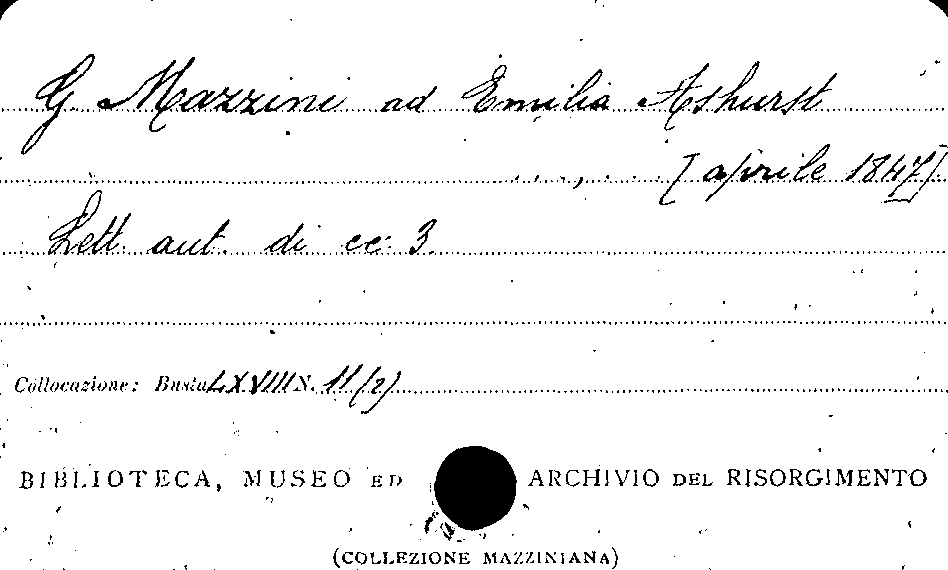 G. Mazzini ad Emilia Ashurst
... , . . [aprile 1847]
Lett. aut. di cc. 3.
Collocazione: Busta LXVIII N. 11 (2)
BIBLIOTECA, MUSEO ED ARCHIVIO DEL RISORGIMENTO
(COLLEZIONE MAZZINIANA)